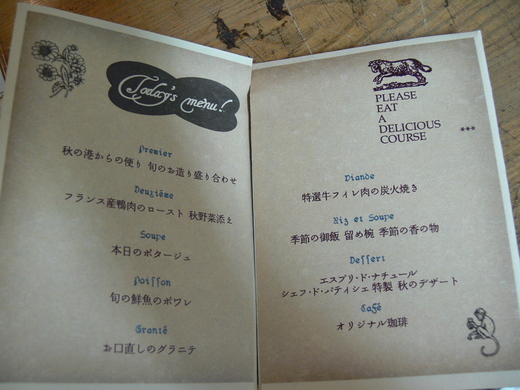 Today's menu!
Premier
秋の港からの便り 旬のお造り盛り合わせ
Deuxième
フランス産鴨肉のロースト 秋野菜添え
Soupe
本日のポタージュ
Poisson
旬の鮮魚のポワレ
Granité
お口直しのグラニテ
PLEASE
EAT
A
DELICIOUS
COURSE
***
Viande
特選牛フィレ肉の炭火焼き
Riz et Soupe
季節の御飯 留め椀 季節の香の物
Dessert
エスプリ・ド・ナチュール
シェフ・ド・パティシェ 特製 秋のデザート
Café
オリジナル珈琲